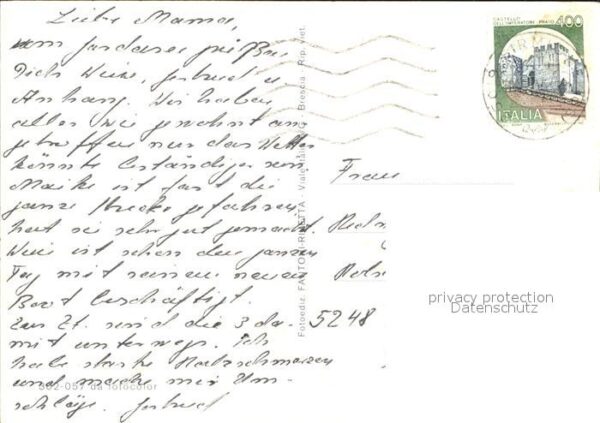 Liebe Mama,
vom Gardasee grüßen
Dich Uwe, Gertrud u
Anhang. Wir haben
alles wie gewohnt an-
getroffen nur das Wetter
könnte beständiger sein
Maike ist fast die
ganze Strecke gefahren,
hat sie sehr gut gemacht.
Uwe ist schon den ganzen
Tag mit seinem neuen
Boot beschäftigt.
Zur Zt. sind die 3 da-
mit unterwegs. Ich
habe starke Halsschmerzen
und mache mir Um-
schläge. Gertrud
Frau
5248
CASTELLO
DELL'IMPERATORE - PRATO
400
ITALIA
Fotoediz. FANTONI-RI ETTA - Viale Brescia - Rip. viet.
802-057 da fotocolor
privacy protection
Datenschutz